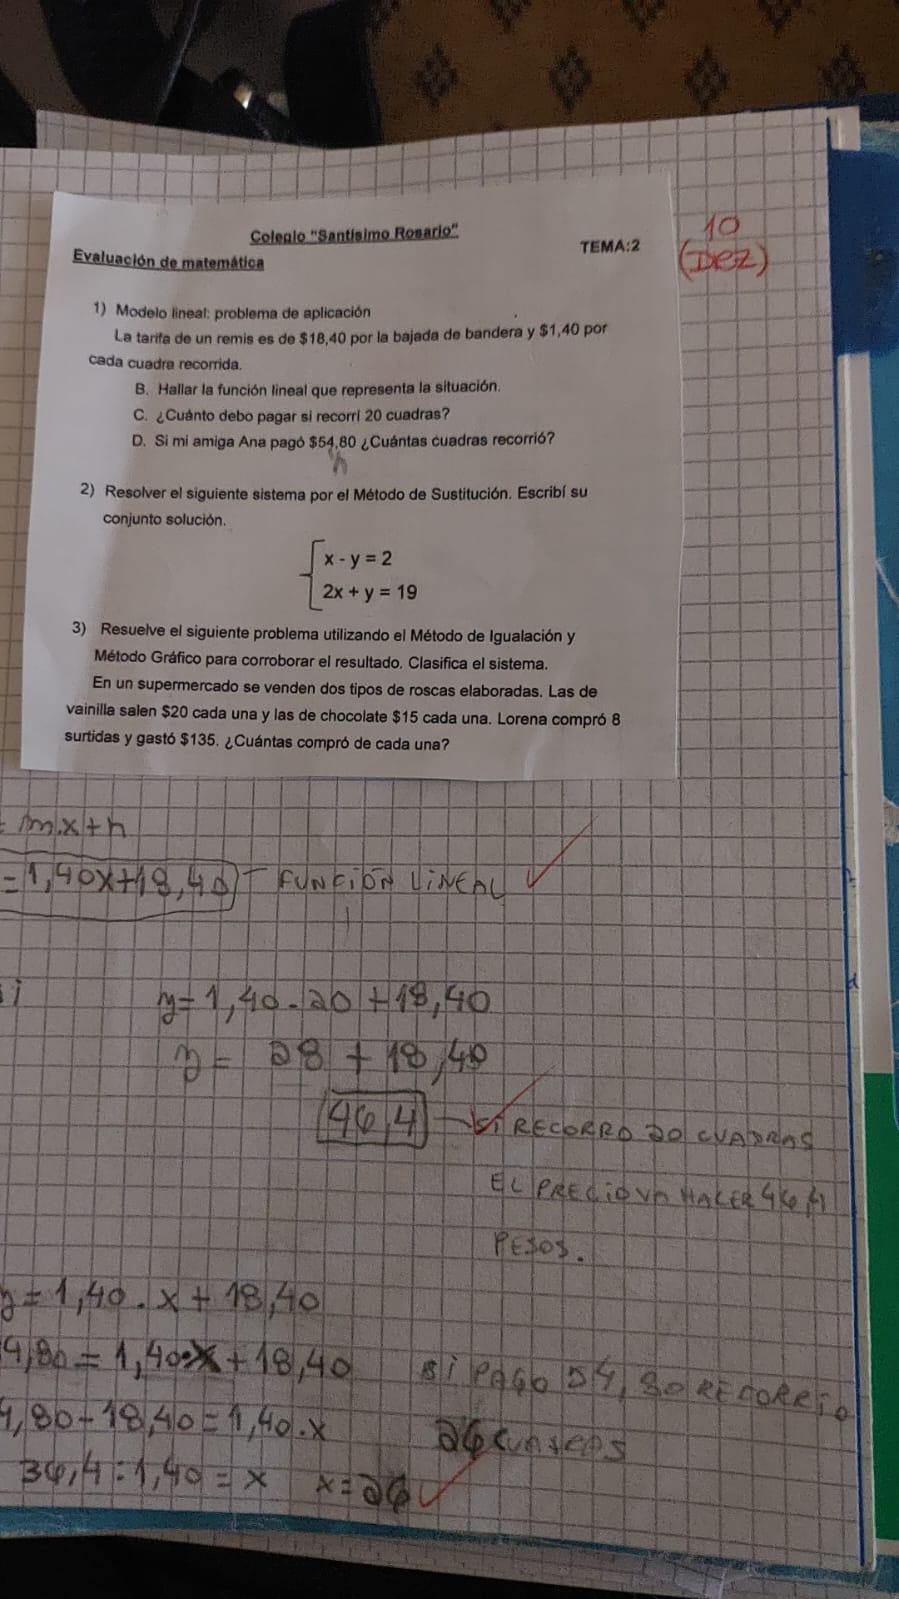 Colegio "Santísimo Rosario"
Evaluación de matemática
TEMA:2
10
(Diez)
1) Modelo lineal: problema de aplicación
La tarifa de un remis es de $18,40 por la bajada de bandera y $1,40 por
cada cuadra recorrida.
B. Hallar la función lineal que representa la situación.
C. ¿Cuánto debo pagar si recorrí 20 cuadras?
D. Si mi amiga Ana pagó $54,80 ¿Cuántas cuadras recorrió?
h
2) Resolver el siguiente sistema por el Método de Sustitución. Escribí su
conjunto solución.
x - y = 2
2x + y = 19
3) Resuelve el siguiente problema utilizando el Método de Igualación y
Método Gráfico para corroborar el resultado. Clasifica el sistema.
En un supermercado se venden dos tipos de roscas elaboradas. Las de
vainilla salen $20 cada una y las de chocolate $15 cada una. Lorena compró 8
surtidas y gastó $135. ¿Cuántas compró de cada una?
= m.x+h
=1,40x+18,40 - FUNCIÓN LINEAL
y=1,40.20+18,40
y= 28 + 18,40
46,4 - SI RECORRO 20 CUADRAS
EL PRECIO VA HACER 46,4
PESOS.
y=1,40.x+18,40
4,80=1,40.x+18,40
SI PAGO 54,80 RECORRIO
4,80-18,40=1,40.x
26
36,4:1,40=x x=26